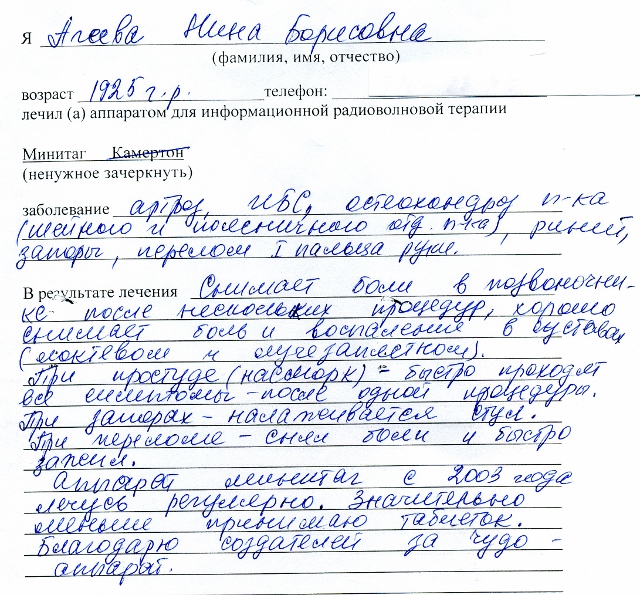 Я Агеева Нина Борисовна
(фамилия, имя, отчество)
возраст 1925 г.р. телефон:
лечил (а) аппаратом для информационной радиоволновой терапии
Минитаг Камертон
(ненужное зачеркнуть)
заболевание артроз, ИБС, остеохондроз п-ка
(шейного и поясничного отд. п-ка), ринит,
запоры, перелом I пальца руки.
В результате лечения Снимает боли в позвоночни-
ке после нескольких процедур, хорошо
снимает боль и воспаление в суставах
(локтевом и лучезапястном).
При простуде (насморк) - быстро проходят
все симптомы - после одной процедуры.
При запорах - налаживается стул.
При переломе - снял боли и быстро
зажил.
Аппарат минитаг с 2003 года
лечусь регулярно. Значительно
меньше принимаю таблеток.
Благодарю создателей за чудо -
аппарат.